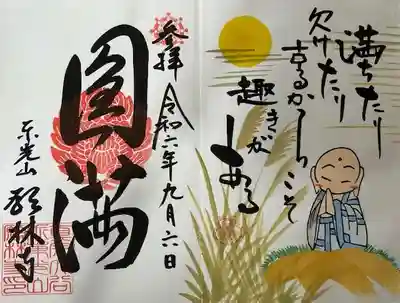 満ちたり
欠けたり
するからこそ
趣きが
ある
参拝
令和六年九月六日
圓満
東光山